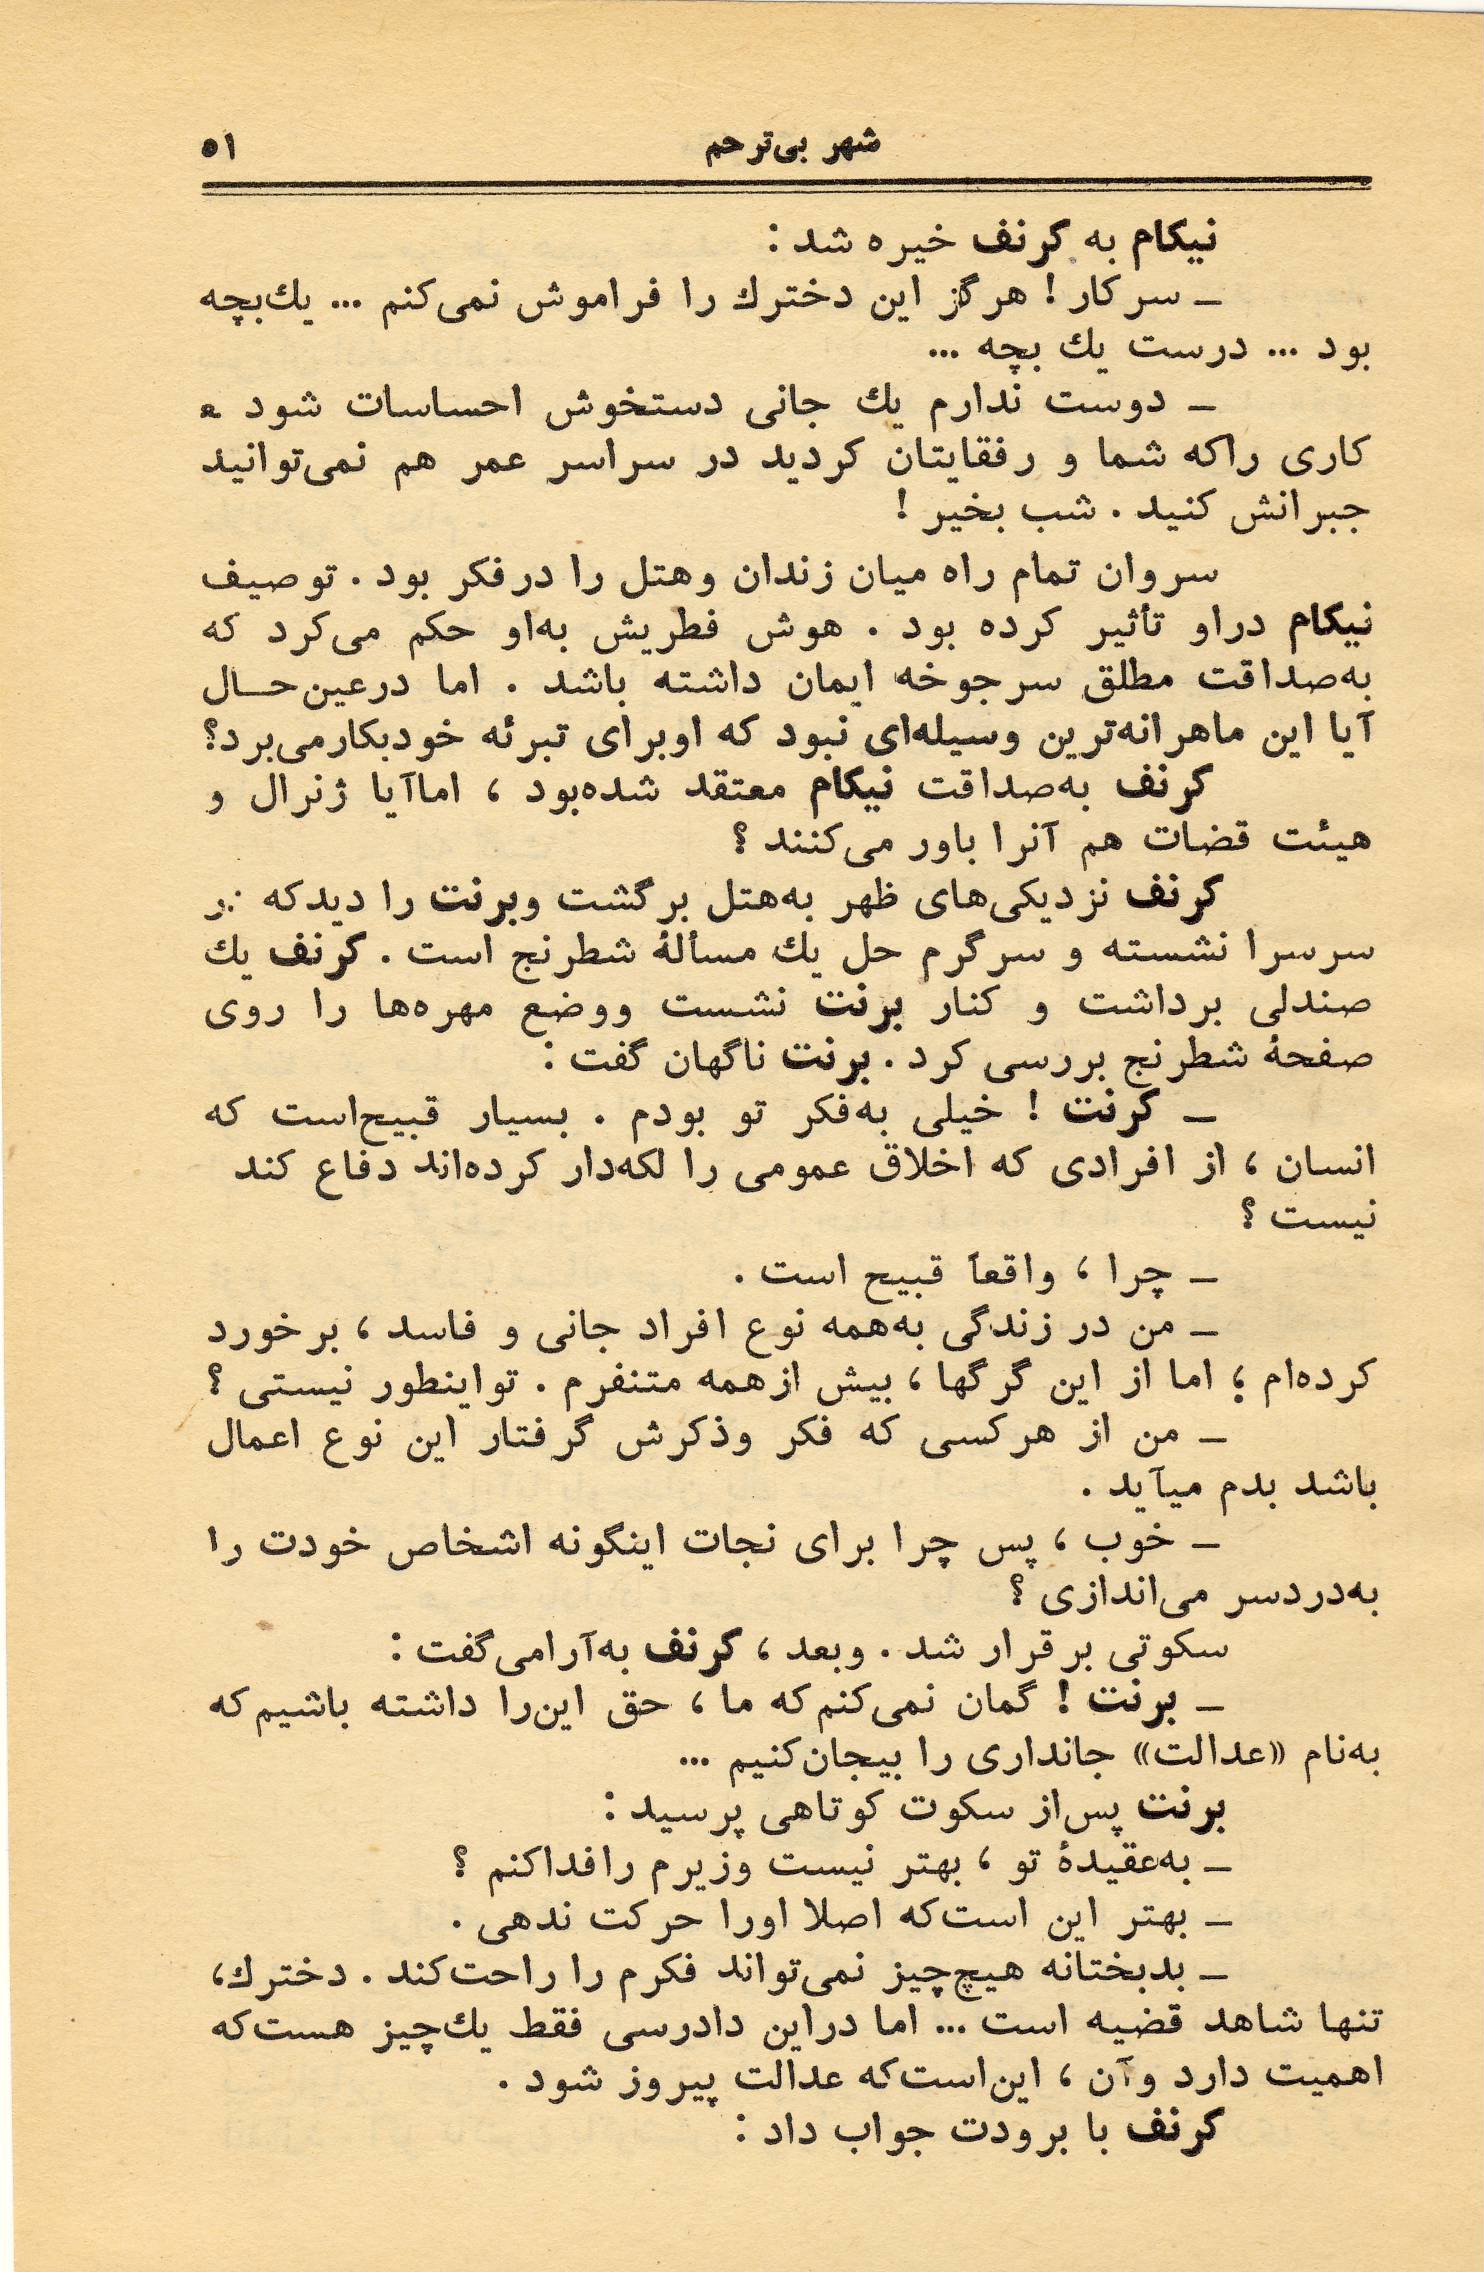 شهر بی‌ترحم
۵۱
نیکام به کرنف خیره شد :
ـ سرکار ! هرگز این دخترك را فراموش نمی‌کنم ... یك‌بچه
بود ... درست یك بچه ...
ـ دوست ندارم یك جانی دستخوش احساسات شود
کاری راکه شما و رفقایتان کردید در سراسر عمر هم نمی‌توانید
جبرانش کنید . شب بخیر !
سروان تمام راه میان زندان وهتل را درفکر بود . توصیف
نیکام دراو تأثیر کرده بود . هوش فطریش به‌او حکم می‌کرد که
به‌صداقت مطلق سرجوخه ایمان داشته باشد . اما درعین‌حـال
آیا این ماهرانه‌ترین وسیله‌ای نبود که اوبرای تبرئه خودبکارمی‌برد؟
کرنف به‌صداقت نیکام معتقد شده‌بود ، اماآیا ژنرال و
هیئت قضات هم آنرا باور می‌کنند ؟
کرنف نزدیکی‌های ظهر به‌هتل برگشت وبرنت را دیدکه
سرسرا نشسته و سرگرم حل یك مسألهٔ شطرنج است . کرنف یك
صندلی برداشت و کنار برنت نشست ووضع مهره‌ها را روی
صفحهٔ شطرنج بررسی کرد . برنت ناگهان گفت :
ـ کرنت ! خیلی به‌فکر تو بودم . بسیار قبیح‌است که
انسان ، از افرادی که اخلاق عمومی را لکه‌دار کرده‌اند دفاع کند
نیست ؟
ـ چرا ، واقعاً قبیح است .
ـ من در زندگی به‌همه نوع افراد جانی و فاسد ، برخورد
کرده‌ام ؛ اما از این گرگها ، بیش ازهمه متنفرم . تواینطور نیستی ؟
ـ من از هرکسی که فکر وذکرش گرفتار این نوع اعمال
باشد بدم میآید .
ـ خوب ، پس چرا برای نجات اینگونه اشخاص خودت را
به‌دردسر می‌اندازی ؟
سکوتی برقرار شد . وبعد ، کرنف به‌آرامی‌گفت :
ـ برنت ! گمان نمی‌کنم‌که ما ، حق این‌را داشته باشیم‌که
به‌نام «عدالت» جانداری را بیجان‌کنیم ...
برنت پس‌از سکوت کوتاهی پرسید :
ـ به‌عقیدهٔ تو ، بهتر نیست وزیرم رافداکنم ؟
ـ بهتر این است‌که اصلا اورا حرکت ندهی .
ـ بدبختانه هیچ‌چیز نمی‌تواند فکرم را راحت‌کند . دخترك،
تنها شاهد قضیه است ... اما دراین دادرسی فقط یك‌چیز هست‌که
اهمیت دارد وآن ، این‌است‌که عدالت پیروز شود .
کرنف با برودت جواب داد :